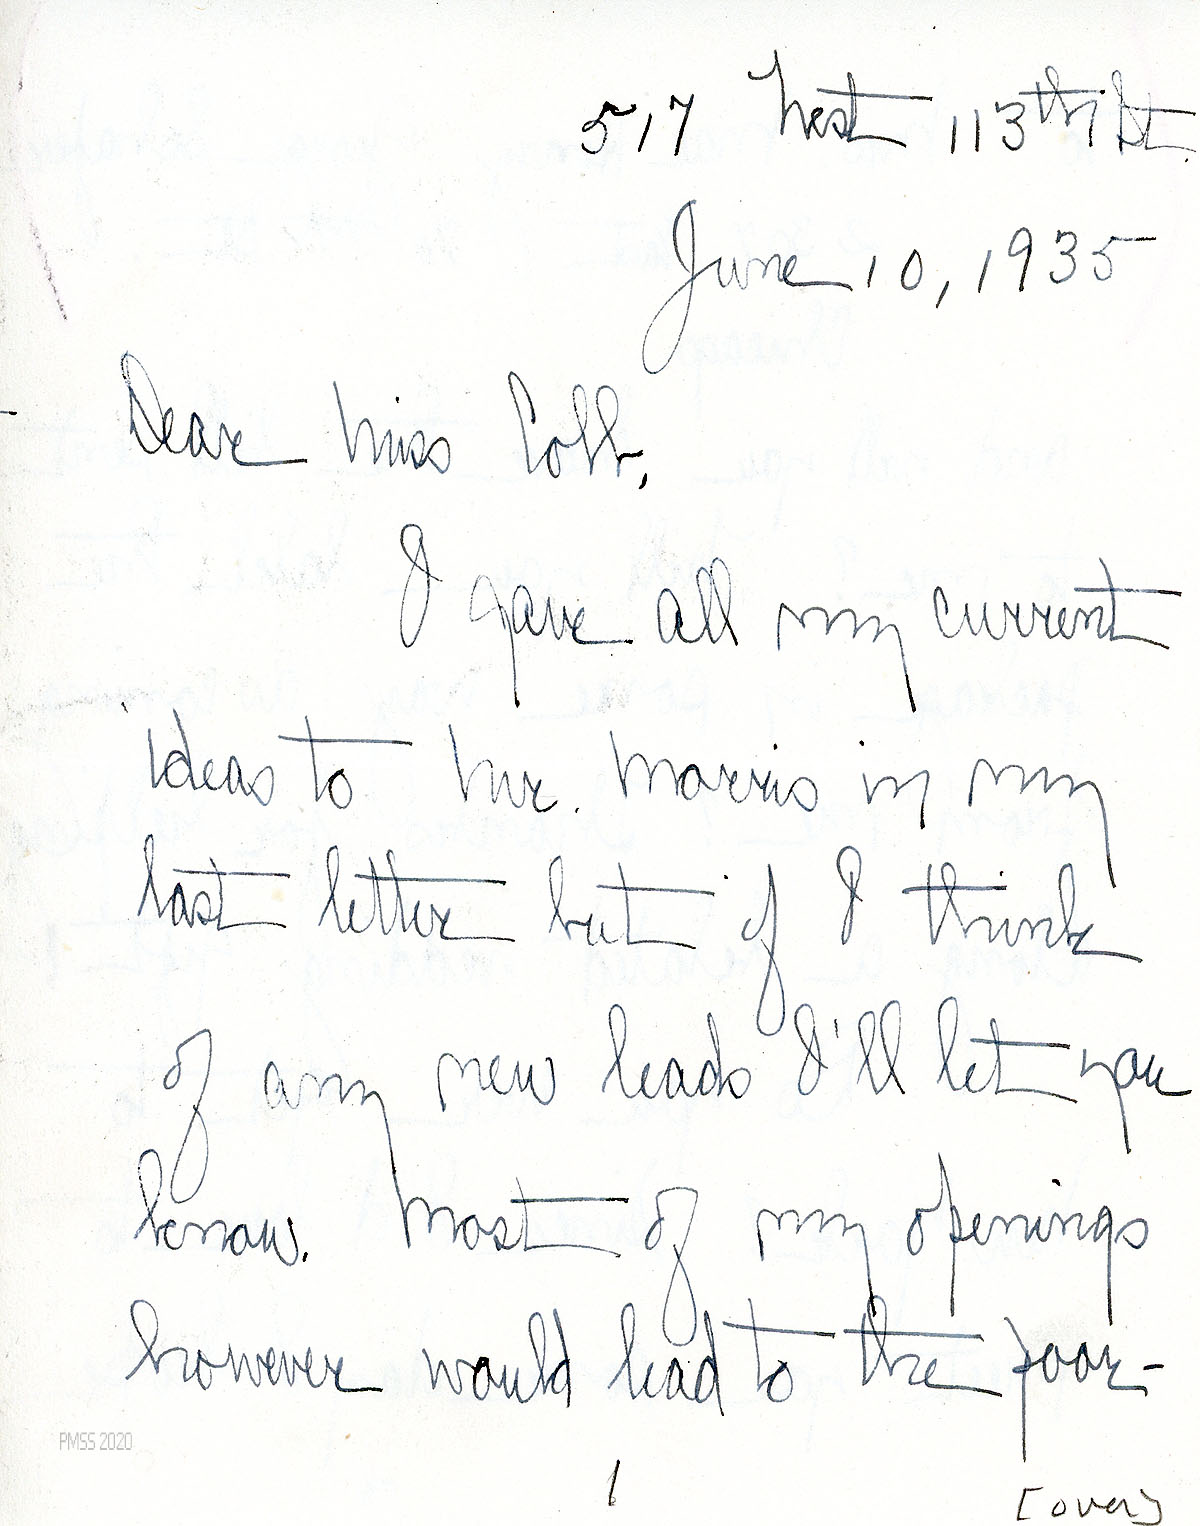 517 West 113th St.
June 10, 1935
Dear Miss Cobb,
I gave all my current
ideas to Mr. Morris in my
last letter but if I think
of any new leads I'll let you
know. Most of my openings
however would lead to the poor-
PMSS 2020
1
[over]